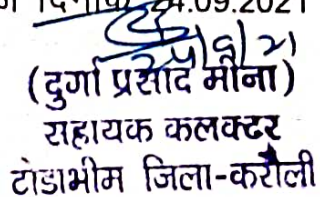 दिनांक 24.09.2021
(दुर्गा प्रसाद मीना)
सहायक कलक्टर
टोडाभीम जिला-करौली